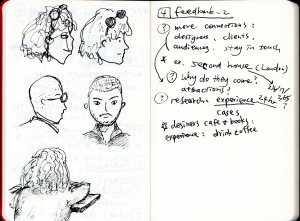 4 feedback-2
① more connections:
designers, clients,
audiences. stay in touch
* ex. second house (London)
② Why do they come? 24/7/
attractions,
③ research: experience
cases
designers cafe & books:
experience: drink coffee